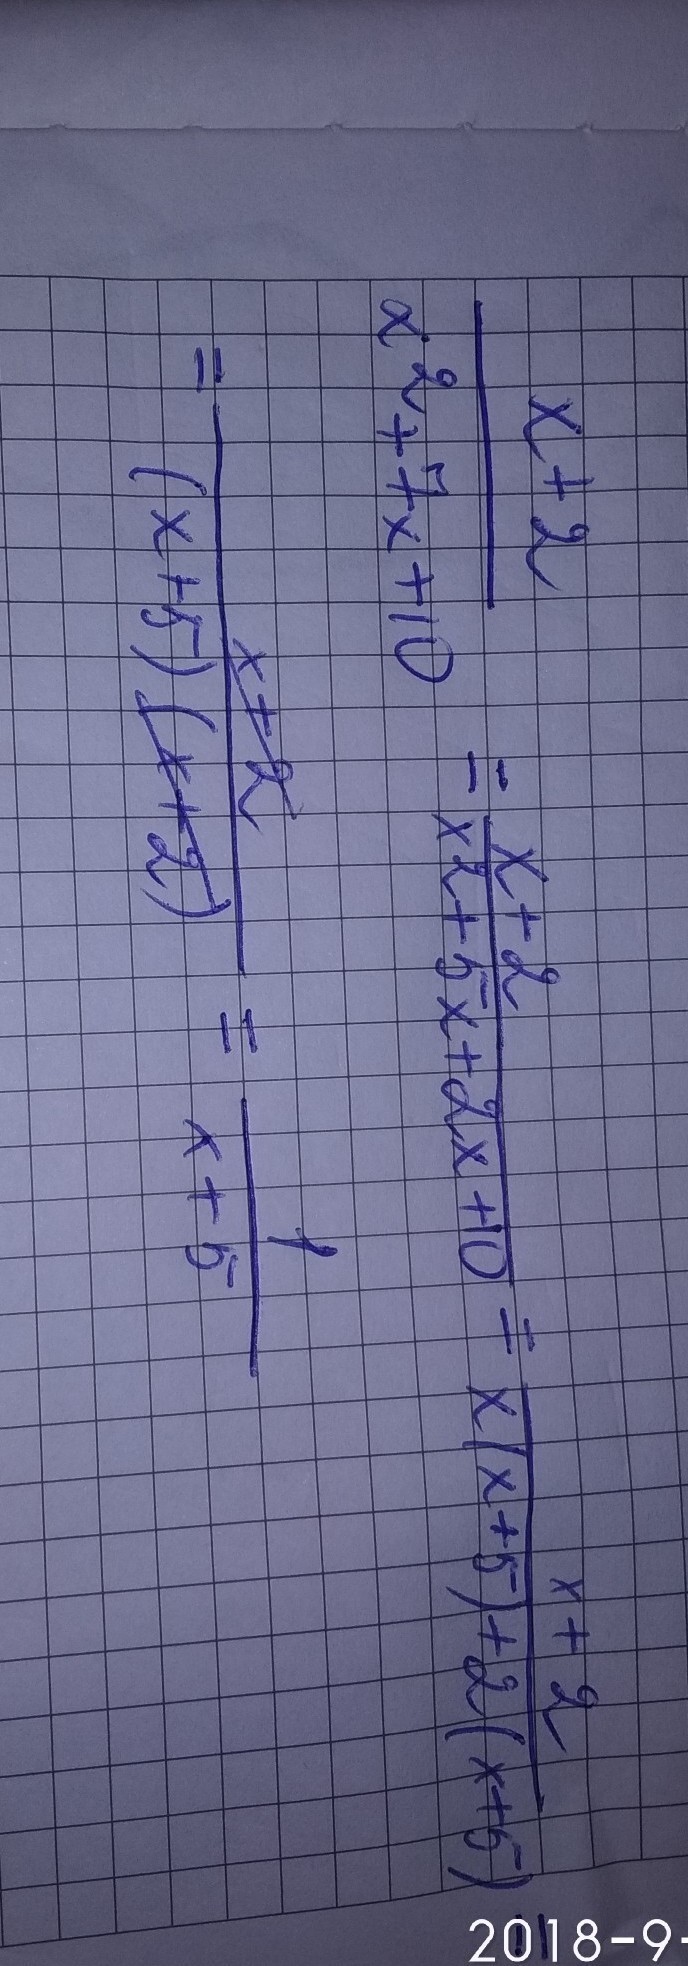 (x+2)/(x²+7x+10) = (x+2)/(x²+5x+2x+10) = (x+2)/(x(x+5)+2(x+5)) =
= (x+2)/((x+5)(x+2)) = 1/(x+5)
2018-9-